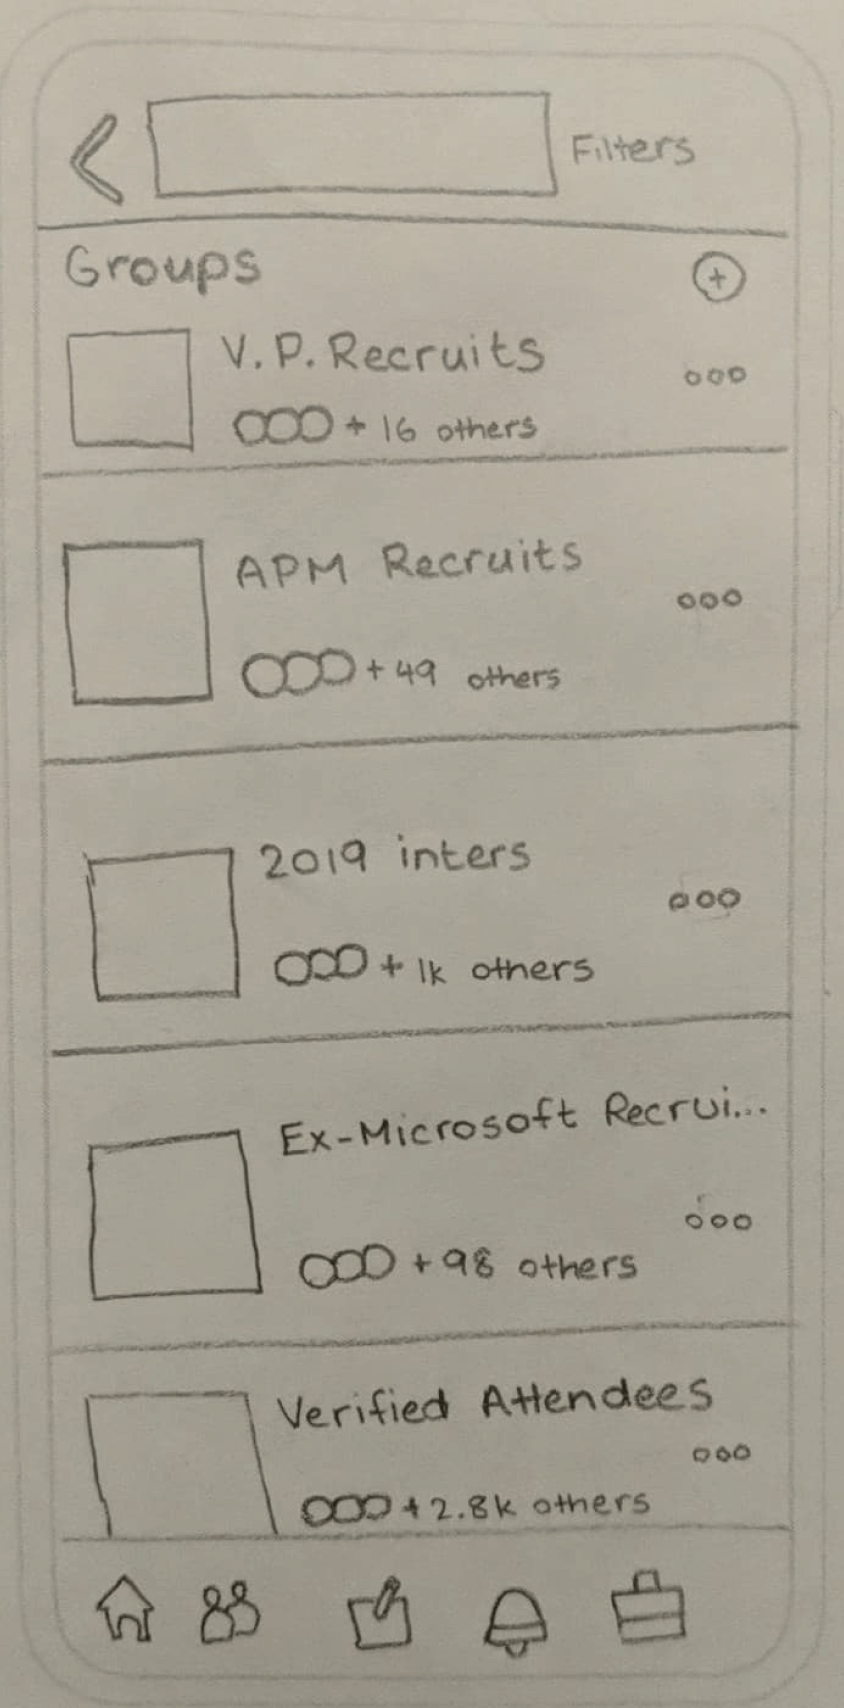 Filters
Groups
V.P. Recruits
+ 16 others
APM Recruits
+ 49 others
2019 inters
+ 1k others
Ex-Microsoft Recrui...
+ 98 others
Verified Attendees
+ 2.8k others